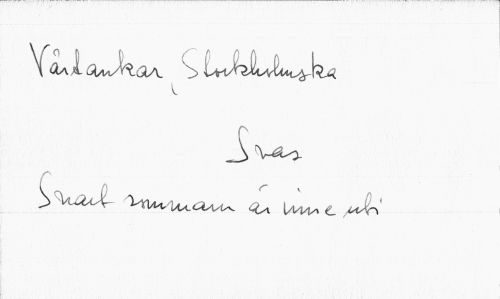 Vårtankar, Stockholmska
Svar
Snart sommarn är inne uti